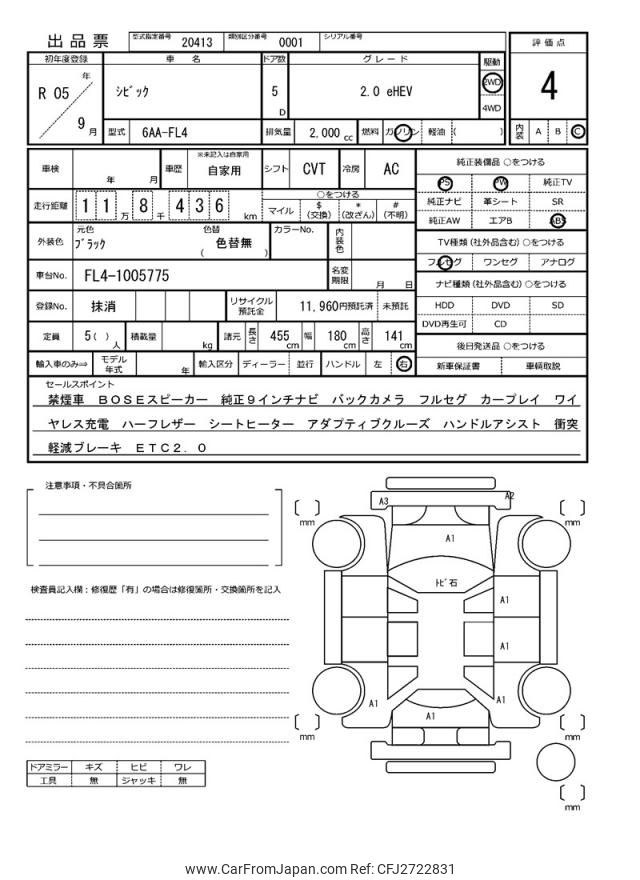 出品票 型式指定番号 20413 類別区分番号 0001 シリアル番号
評価点
4
内装 A B C
初年度登録 車名 ドア数 グレード 駆動
R 05 年 9 月
シビック 5 D 2.0 eHEV 2WD 4WD
型式 6AA-FL4 排気量 2,000 cc 燃料 ガソリン 軽油 ( )
車検 年 月 車歴 ※未記入は自家用 自家用 シフト CVT 冷房 AC
走行距離 1 1 万 8 千 4 3 6 km
○をつける
マイル $ (交換) * (改ざん) # (不明)
外装色 元色 ブラック 色替 ( 色替無 ) カラーNo. 内装色
車台No. FL4-1005775 名変期限 月 日
登録No. 抹消 リサイクル預託金 11,960円預託済 未預託
定員 5( ) 人 積載量 kg 諸元 長さ 455 cm 幅 180 cm 高さ 141 cm
輸入車のみ⇒ モデル年式 年 輸入区分 ディーラー 並行 ハンドル 左 右
純正装備品 ○をつける
PS PW 純正TV
純正ナビ 革シート SR
純正AW エアB ABS
TV種類 (社外品含む) ○をつける
フルセグ ワンセグ アナログ
ナビ種類 (社外品含む) ○をつける
HDD DVD SD
DVD再生可 CD
後日発送品 ○をつける
新車保証書 車輌取説
セールスポイント
禁煙車 BOSEスピーカー 純正9インチナビ バックカメラ フルセグ カープレイ ワイ
ヤレス充電 ハーフレザー シートヒーター アダプティブクルーズ ハンドルアシスト 衝突
軽減ブレーキ ETC2.0
注意事項・不具合箇所
検査員記入欄:修復歴「有」の場合は修復箇所・交換箇所を記入
ドアミラー キズ ヒビ ワレ
工具 無 ジャッキ 無
A3 A2
mm mm
A1
トビ石
A1
A1
A1 A1
A1
mm mm
mm
www.CarFromJapan.com Ref: CFJ2722831